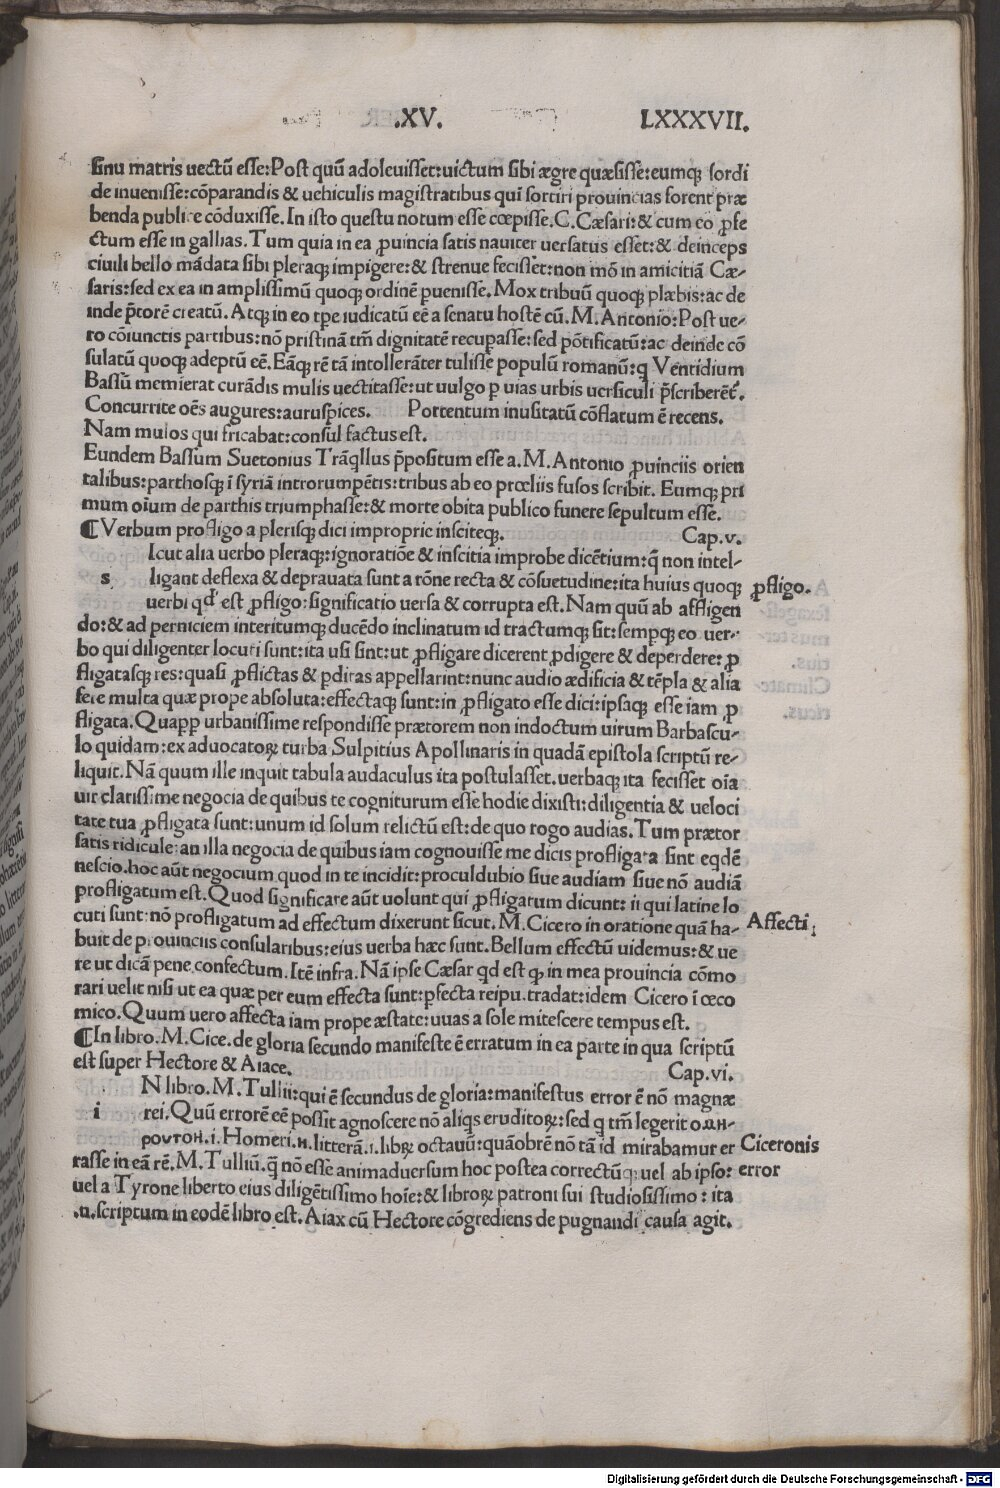 .XV. LXXXVII.
sinu matris uectū esse:Post quū adoleuisset:uictum sibi ægre quæsisse:eumqꝫ sordi
de inuenisse:cōparandis & uehiculis magistratibus qui sortiri prouincias forent præ
benda publice cōduxisse.In isto questu notum esse cœpisse.C.Cæsari:& cum eo ꝓfe
ctum esse in gallias.Tum quia in ea ꝓuincia satis nauiter uersatus esset:& deinceps
ciuili bello mādata sibi pleraqꝫ impigere:& strenue fecisset:non mō in amicitiā Cæ-
saris:sed ex ea in amplissimū quoqꝫ ordinē ꝑuenisse.Mox tribuū quoqꝫ plæbis:ac de
inde p̄torē creatū.Atqꝫ in eo tꝑe iudicatū eē a senatu hostē cū.M.Antonio:Post ue-
ro cōiunctis partibus:nō pristinā tm̄ dignitatē recuꝑasse:sed pōtificatū:ac deinde cō
sulatū quoqꝫ adeptū eē.Eāqꝫ rē tā intollerāter tulisse populū romanū:q Ventidium
Bassū memierat curādis mulis uectitasse:ut uulgo ꝑ uias urbis uersiculi p̄scriberēt.
Concurrite oēs augures:auruspices. Portentum inusitatū cōflatum ē recens.
Nam mulos qui fricabat:consul factus est.
Eundem Bassum Suetonius Trāq̄llus p̄positum esse a.M.Antonio ꝓuinciis orien
talibus:parthosqꝫ ī syriā introrumpētis:tribus ab eo prœliis fusos scribit. Eumqꝫ pri
mum oīum de parthis triumphasse:& morte obita publico funere sepultum esse.
¶Verbum profligo a plerisqꝫ dici improprie insciteqꝫ. Cap.v.
Icut alia uerbo pleraqꝫ:ignoratiōe & inscitia improbe dicētium:q̄ non intel-
s ligant deflexa & deprauata sunt a rōne recta & cōsuetudine:ita huius quoqꝫ ꝓfligo.
uerbi qd' est ꝓfligo:significatio uersa & corrupta est.Nam quū ab affligen
do:& ad perniciem interitumqꝫ ducēdo inclinatum id tractumqꝫ sit:sempqꝫ eo uer-
bo qui diligenter locuti sunt:ita usi sint:ut ꝓfligare dicerent ꝓdigere & deperdere: ꝓ
fligatasqꝫ res:quasi ꝓflictas & ꝑditas appellarint:nunc audio ædificia & tēpla & alia
fere multa quæ prope absoluta:effectaqꝫ sunt:in ꝓfligato esse dici:ipsaqꝫ esse iam ꝓ
fligata.Quapꝑ urbanissime respondisse prætorem non indoctum uirum Barbascu-
lo quidam:ex aduocatoꝝ turba Sulpitius Apollinaris in quadā epistola scriptū re-
liquit.Nā quum ille inquit tabula audaculus ita postulasset.uerbaqꝫ ita fecisset oīa
uir clarissime negocia de quibus te cogniturum esse hodie dixisti:diligentia & ueloci
tate tua ꝓfligata sunt:unum id solum relictū est:de quo rogo audias.Tum prætor
satis ridicule:an illa negocia de quibus iam cognouisse me dicis profligata sint eqdē
nescio.hoc aūt negocium quod in te incidit:proculdubio siue audiam siue nō audiā
profligatum est.Quod significare aūt uolunt qui ꝓfligatum dicunt: ii qui latine lo
cuti sunt:nō profligatum ad effectum dixerunt sicut.M.Cicero in oratione quā ha- Affecti;
buit de prouinciis consularibus:eius uerba hæc sunt.Bellum effectū uidemus:& ue
re ut dicā pene confectum.Itē infra.Nā ipse Cæsar qd est qꝫ in mea prouincia cōmo
rari uelit nisi ut ea quæ per eum effecta sunt:ꝑfecta reipu.tradat:idem Cicero ī œco
mico.Quum uero affecta iam prope æstate:uuas a sole mitescere tempus est.
¶In libro.M.Cice.de gloria secundo manifeste ē erratum in ea parte in qua scriptū
est super Hectore & Aiace. Cap.vi.
N libro.M.Tullii:qui ē secundus de gloria:manifestus error ē nō magnæ
i rei.Quū errorē eē possit agnoscere nō aliqs eruditoꝝ:sed q tm̄ legerit ομη-
ρουτοη.i.Homeri.η.litterā.i.libꝝ octauū:quāobrē nō tā id mirabamur er Ciceronis
rasse in eā rē.M.Tulliū.q̄ nō esse animaduersum hoc postea correctūqꝫ uel ab ipso: error
uel a Tyrone liberto eius diligētissimo hoīe:& libroꝝ patroni sui studiosissimo : ita
.n.scriptum in eodē libro est.Aiax cū Hectore cōgrediens de pugnandi causa agit.
Digitalisierung gefördert durch die Deutsche Forschungsgemeinschaft - DFG